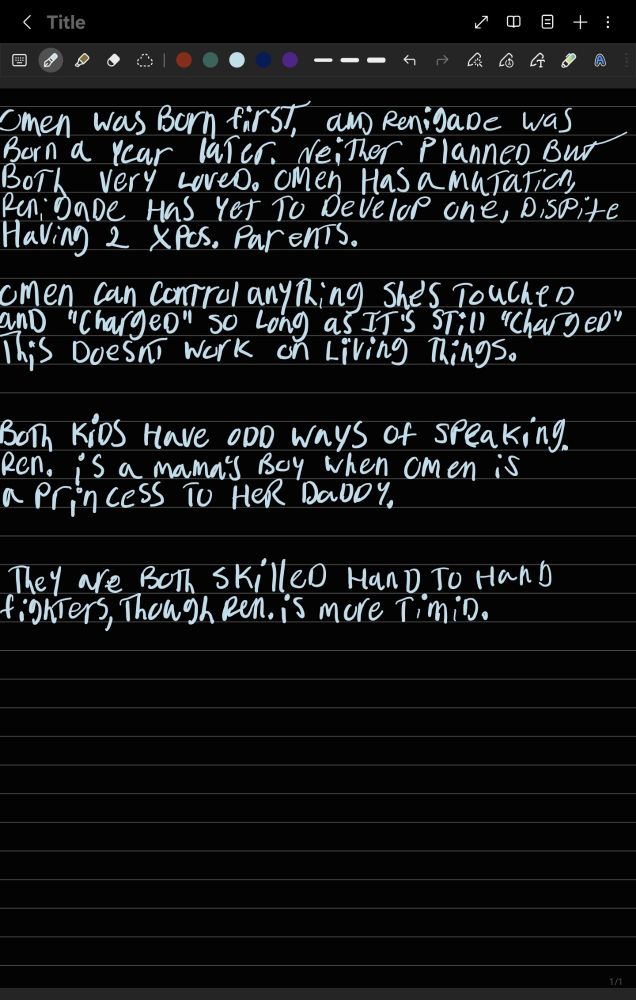 Title
Omen was Born first, and Renigade was
Born a year later. Neither Planned But
Both very Loved. Omen Has a mutation,
Renigade Has yet to Develop one, Dispite
Having 2 XPos. Parents.
Omen can control anything she's Touched
and "Charged" so Long as IT's still "Charged"
This Doesnt work on Living Things.
Both Kids Have odd ways of speaking.
Ren. is a mama's Boy when Omen is
a Princess to Her Daddy.
They are Both skilled Hand to Hand
fighters, Though Ren. is more Timid.
1/1